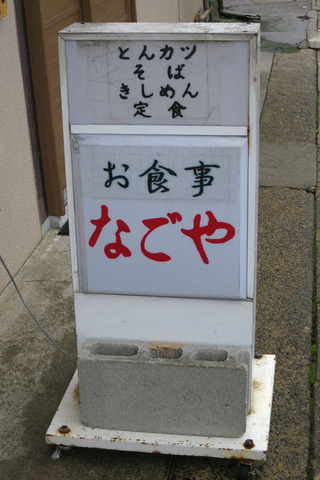 とんカツ
そば
きしめん
定食
お食事
なごや